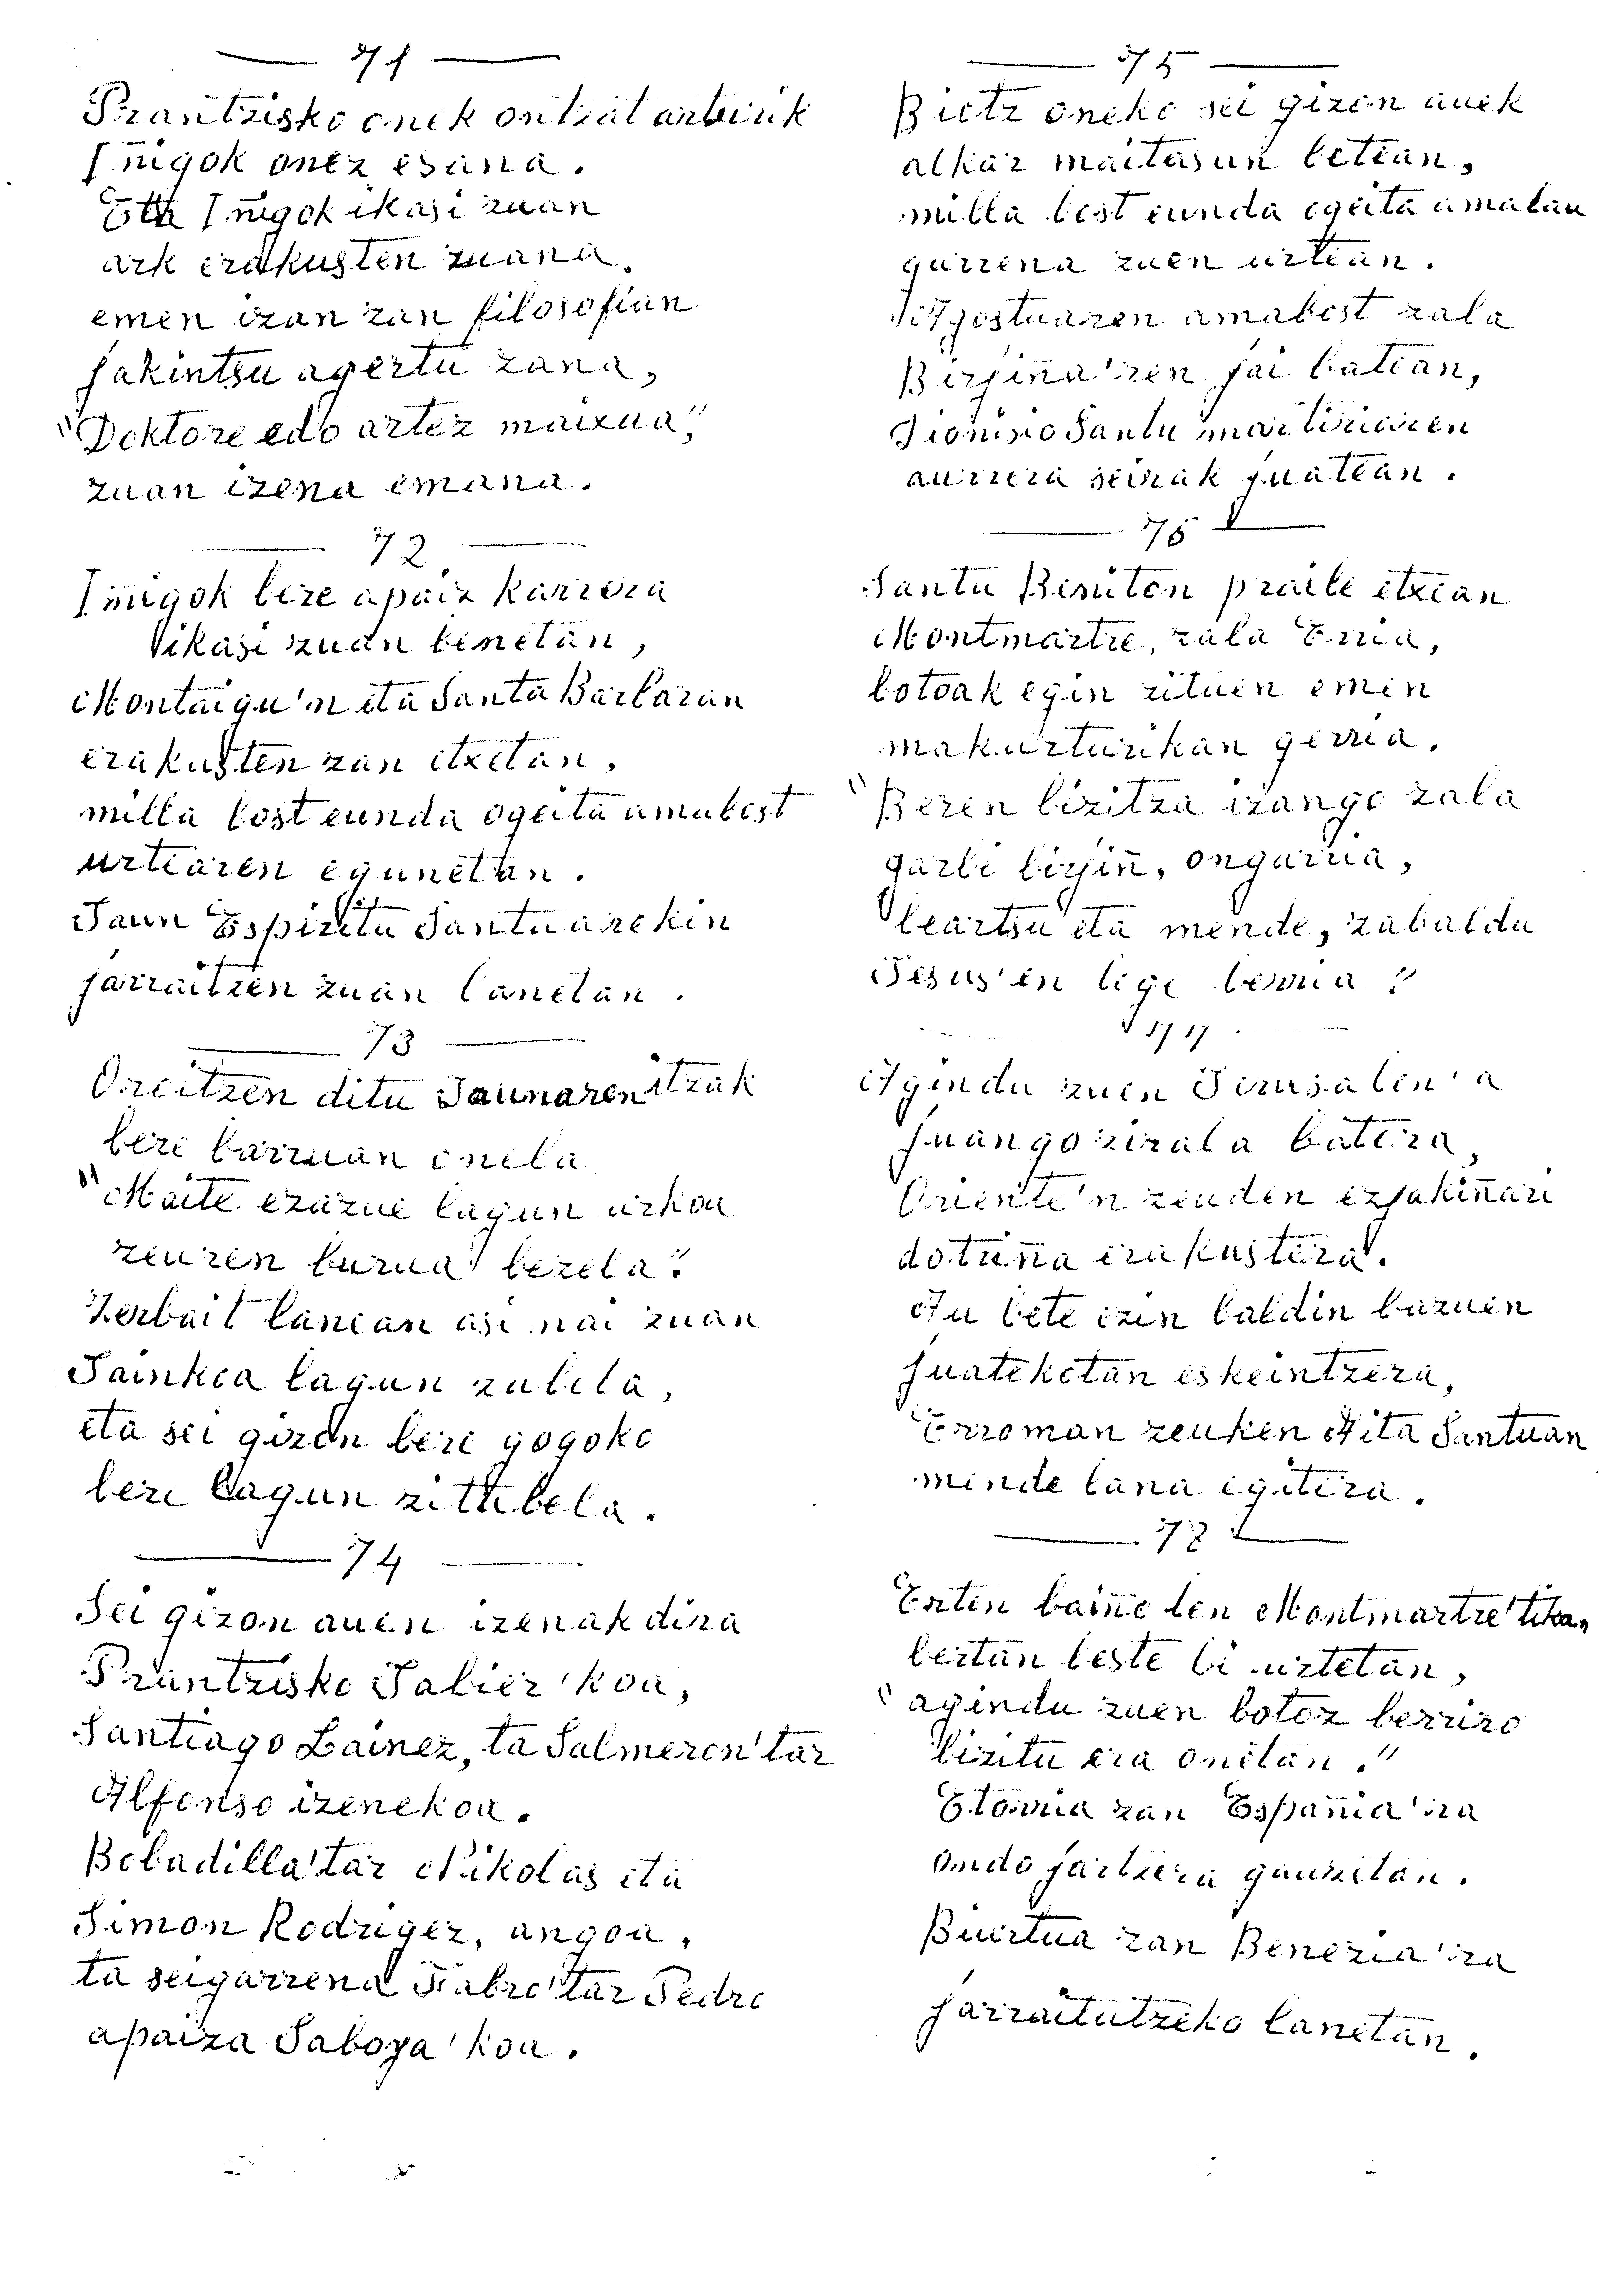 71
Prantzisko onek ontzat arturik
Iñigok onez esana.
Eta Iñigok ikasi zuan
ark erakusten zuana.
emen izan zan filosofian
jakintsu agertu zana,
"Doktore edo artez maixua",
zuan izena emana.
72
Iñigok bere apaiz karrera
ikasi zuan benetan,
Montaigu'n eta Santa Barbaran
erakusten zan etxetan,
milla bost eunda ogeita amabost
urtearen egunetan.
Jaun Espiritu Santuarekin
jarraitzen zuan lanetan.
73
Oroitzen ditu Jaunaren itzak
bere barruan onela
"Maite ezazue lagun urkoa
zeuren burua bezela".
Zerbait lanean asi nai zuan
Jainkoa lagun zulela,
eta sei gizon bere gogoko
bere lagun zittubela.
74
Sei gizon auen izenak dira
Prantzisko Jabier'koa,
Santiago Lainez, ta Salmeron'tar
Alfonso izenekoa.
Bobadilla'tar Nikolas eta
Simon Rodrigez, angoa,
ta seigarrena Fabro'tar Pedro
apaiza Saboya'koa.
75
Biotz oneko sei gizon auek
alkar maitasun betean,
milla bost eunda ogeita amalau
garrena zuen urtean.
Agostuaren amabost zala
Birjiña'ren jai batean,
Dionisio Santu martiriaren
aurrera seirak juatean.
76
Santu Beniton praile etxean
Montmartre, zala Erria,
botoak egin zituen emen
makurturikan gerria.
"Beren bizitza izango zala
garbi birjiñ, ongarria,
beartsu eta mende, zabaldu
Jesus'en lege berria".
77
Agindu zuen Jerusalen'a
juango zirala batera,
Oriente'n zeuden ezjakiñari
dotriña erakustera.
Au bete ezin baldin bazuen
juateketan eskeintzera,
Erroman zeuken Aita Santuan
mende lana egitera.
78
Erten baiño len Montmartre'tika,
bertan beste bi urtetan,
"agindu zuen botoz berriro
bizitu era onetan."
Etorria zan España'ra
ondo jartzera gauzetan.
Biurtua zan Benezia'ra
jarraitutzeko lanetan.